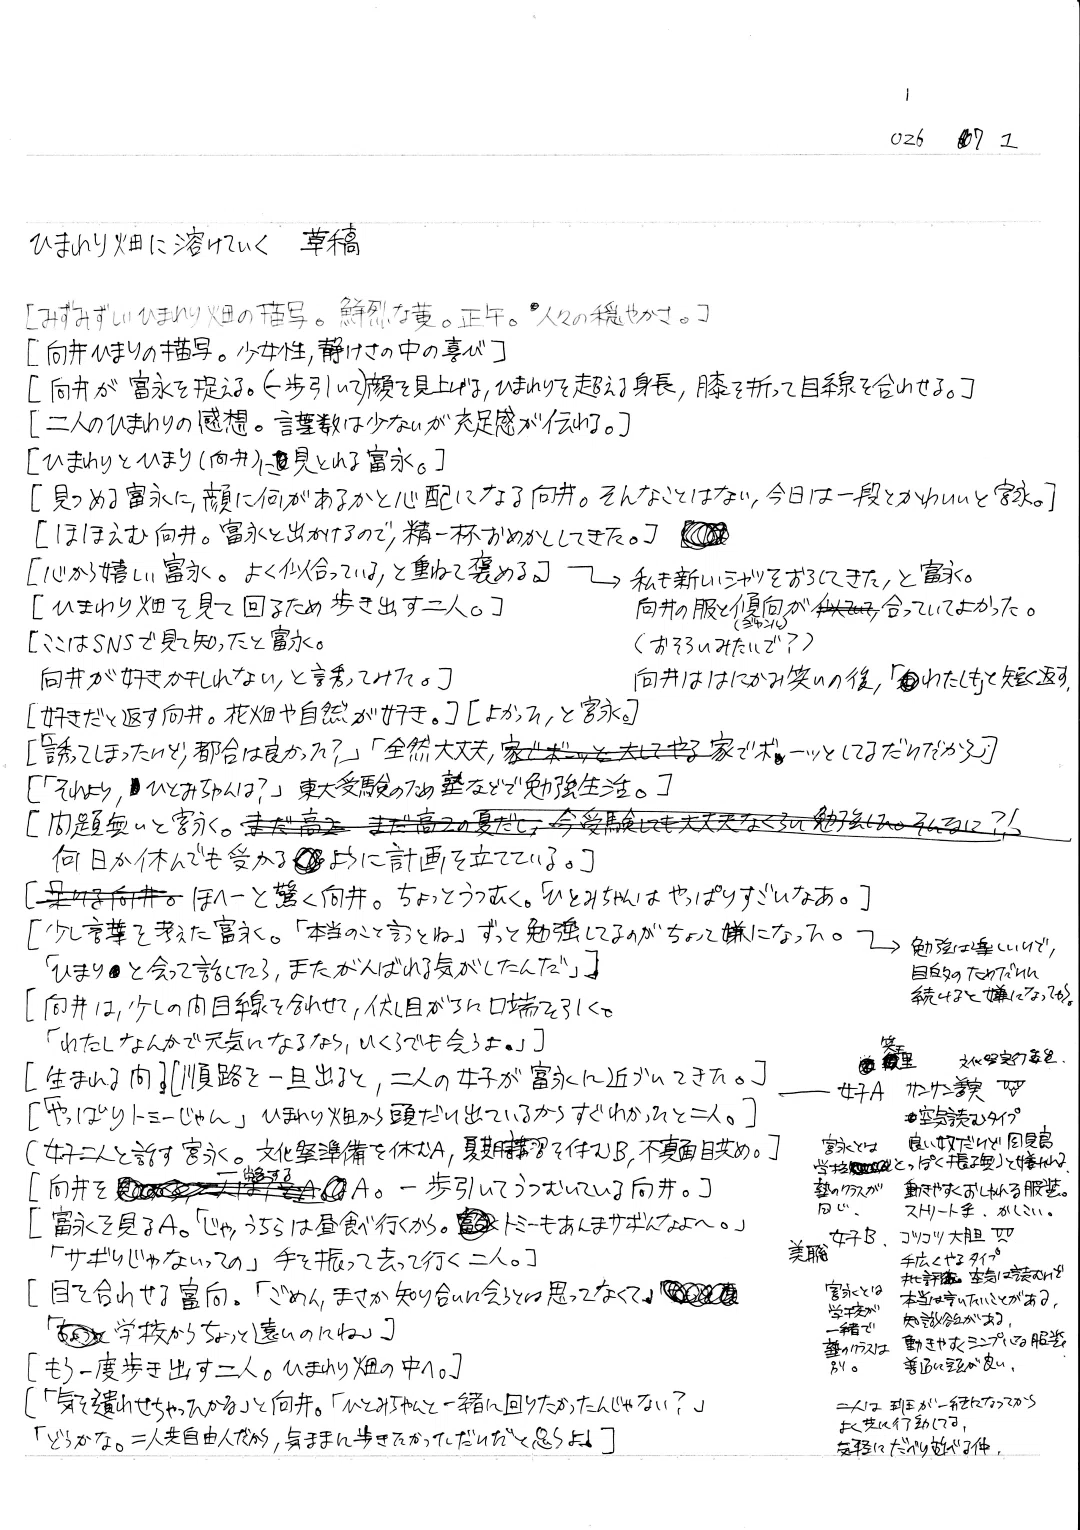 1
026 07 1
ひまわり畑に溶けていく 草稿
[みずみずしいひまわり畑の描写。鮮烈な黄。正午。人々の穏やかさ。]
[向井ひまりの描写。少女性,静けさの中の喜び]
[向井が富永を捉える。(一歩引いて)顔を見上げる,ひまわりを超える身長,膝を折って目線を合わせる。]
[二人のひまわりの感想。言葉数は少ないが充足感が伝わる。]
[ひまわりとひまり(向井)に見とれる富永。]
[見つめる富永に,顔に何があるかと心配になる向井。そんなことはない,今日は一段とかわいいと富永。]
[ほほえむ向井。富永と出かけるので,精一杯おめかししてきた。]
[心から嬉しい富永。よく似合っている,と重ねて褒める。]
私も新しいシャツをおろしてきた,と富永。
向井の服と傾向が合っていてよかった。
(ジャンル)
(おそろいみたいで?)
向井ははにかみ笑いの後,「わたしも」と短く返す,
[ひまわり畑を見て回るため歩き出す二人。]
[ここはSNSで見て知ったと富永。
向井が好きかもしれない,と誘ってみた。]
[好きだと返す向井。花畑や自然が好き。][よかった,と富永。]
[「誘ってしまったけど,都合は良かった?」「全然大丈夫,家でボーッとしてるだけだから」]
[「それより,ひとみちゃんは?」東大受験のため塾などで勉強生活。]
[問題無いと富永。まだ高2 まだ高2の夏だし,今受験しても大丈夫なくらい勉強した。そんなに?!
何日か休んでも受かるように計画を立てている。]
[呆れる向井。ほへーと驚く向井。ちょっとうつむく。「ひとみちゃんはやっぱりすごいなあ。]
[少し言葉を考えた富永。「本当のこと言うとね」ずっと勉強してるのがちょっと嫌になった。
勉強は楽しいけど,
目的のためだけに
続けると嫌になってきた。
「ひまりと会って話したら,またがんばれる気がしたんだ」]
[向井は,少しの間目線を合わせて,伏し目がちに口端を引く。
「わたしなんかで元気になるなら,いくらでも会うよ。」]
[生まれる間][順路を一旦出ると,二人の女子が富永に近づいてきた。]
[「やっぱりトミーじゃん」ひまわり畑から頭だけ出ているからすぐわかったと二人。]
[女子二人と話す富永。文化祭準備を休むA,夏期講習を休むB,不真面目共め。]
[向井を一瞥するA。一歩引いてうつむいている向井。]
[富永を見るA。「じゃ,うちらは昼食べ行くから。トミーもあんまサボんなよ〜。」
「サボりじゃないっての」手を振って去って行く二人。]
[目を合わせる富向。「ごめん,まさか知り合いに会うとは思ってなくて。」
「学校からちょっと遠いのにね」]
[もう一度歩き出す二人。ひまわり畑の中へ。]
[「気を遣わせちゃったかな」と向井。「ひとみちゃんと一緒に回りたかったんじゃない?」
「どうかな。二人共自由人だから,気ままに歩きたかっただけだと思うよ」]
文化祭実行委員.
女子A サンサン誠実
空気読むタイプ
動きやすくおしゃれな服装。
ストリート系.かしこい。
富永とは
塾のクラスが
同じ.
女子B. コツコツ大胆
美聡
手広くやるタイプ
本当は言いたいことがある,
知識欲がある.
動きやすくシンプルな服装.
富永とは
学校が
一緒で
塾のクラスは
別。
二人は班が一緒になってから
よく共に行動してる,
気軽にだべり遊べる仲.